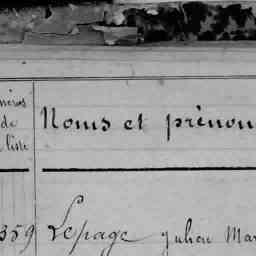 Noms et prénom
de
liste
359 Lepage Julien Mar